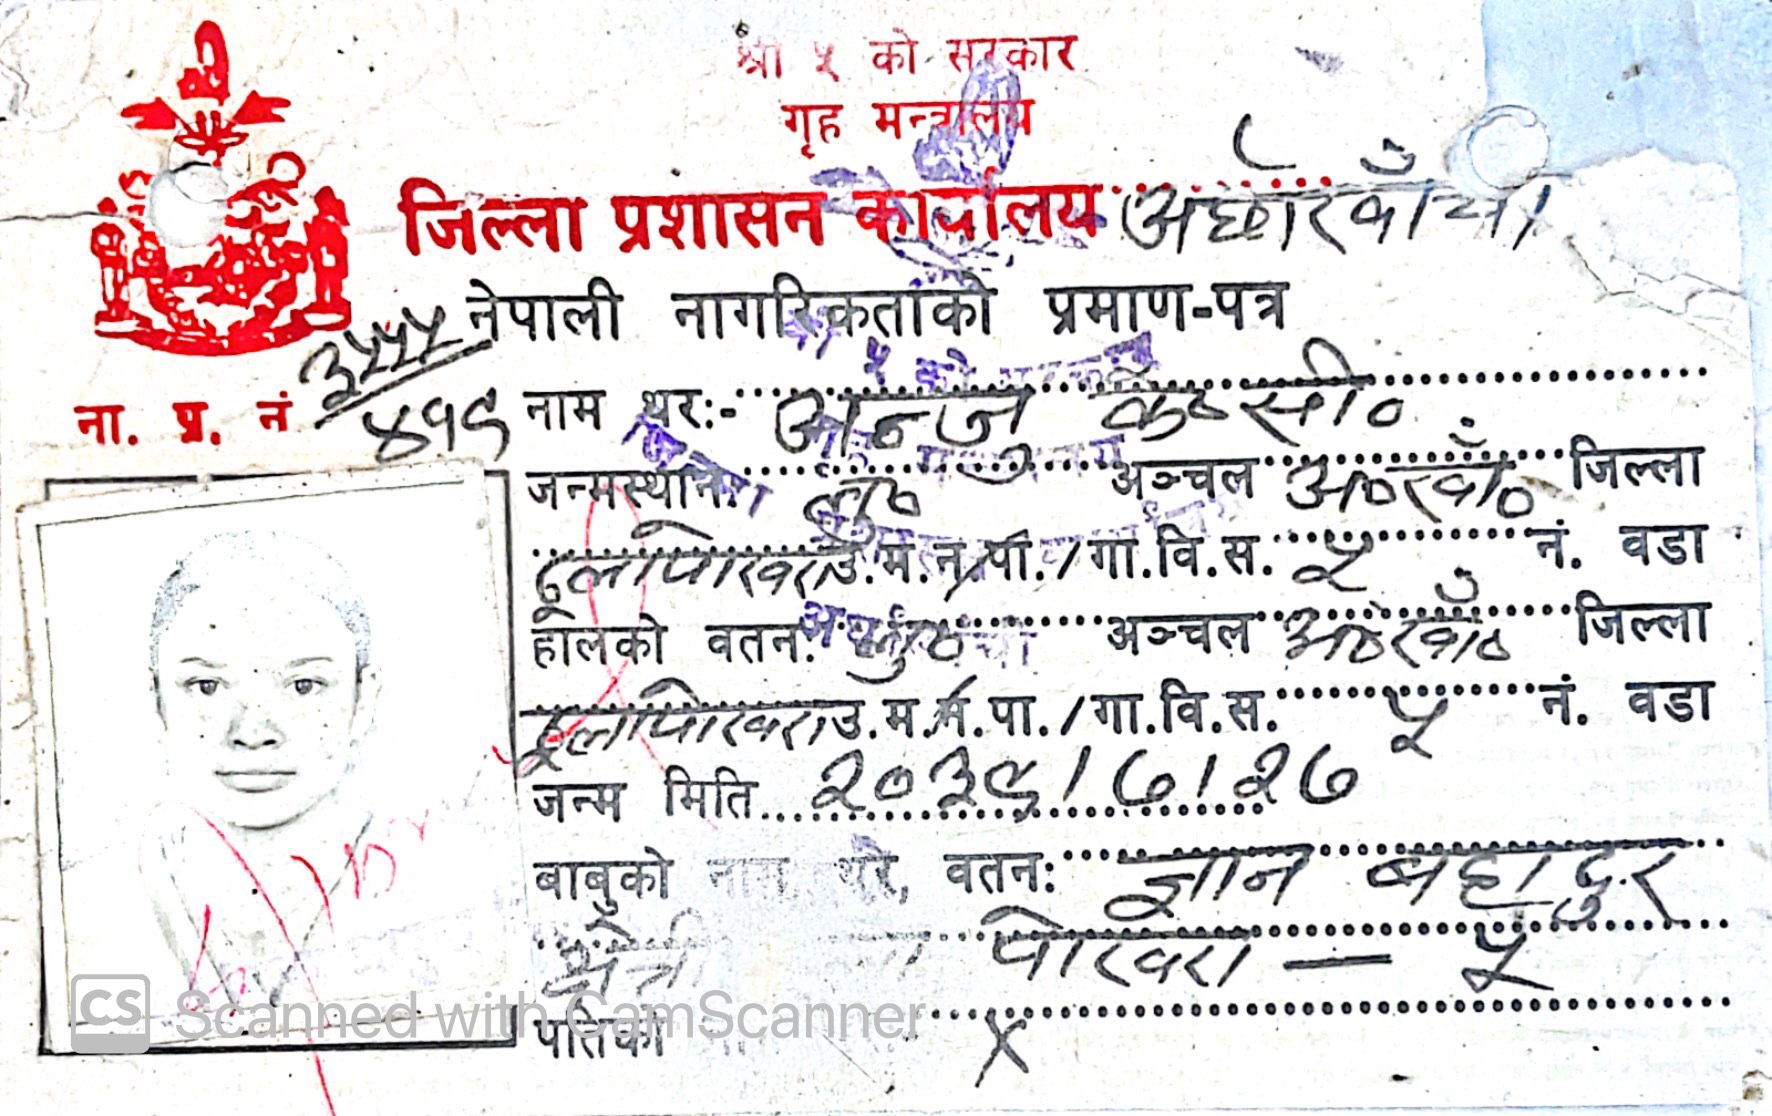 श्री ५ को सरकार
गृह मन्त्रालय
जिल्ला प्रशासन कार्यालय अर्घाखाँची
नेपाली नागरिकताको प्रमाण-पत्र
ना. प्र. नं ३५५५/४१९
नाम थर:- अन्जु के०सी०
जन्मस्थान: लु० अञ्चल अ०खाँ० जिल्ला
ठूलापोखरा उ.म.न.पा./गा.वि.स. ५ नं. वडा
हालको वतन: लु० अञ्चल अ०खाँ० जिल्ला
ठूलापोखरा उ.म.न.पा./गा.वि.स. ५ नं. वडा
जन्म मिति २०३९।७।२७
बाबुको नाम थर, वतन: ज्ञान बहादुर
क्षेत्री पोखरा — ५
पतिको X
CS Scanned with CamScanner